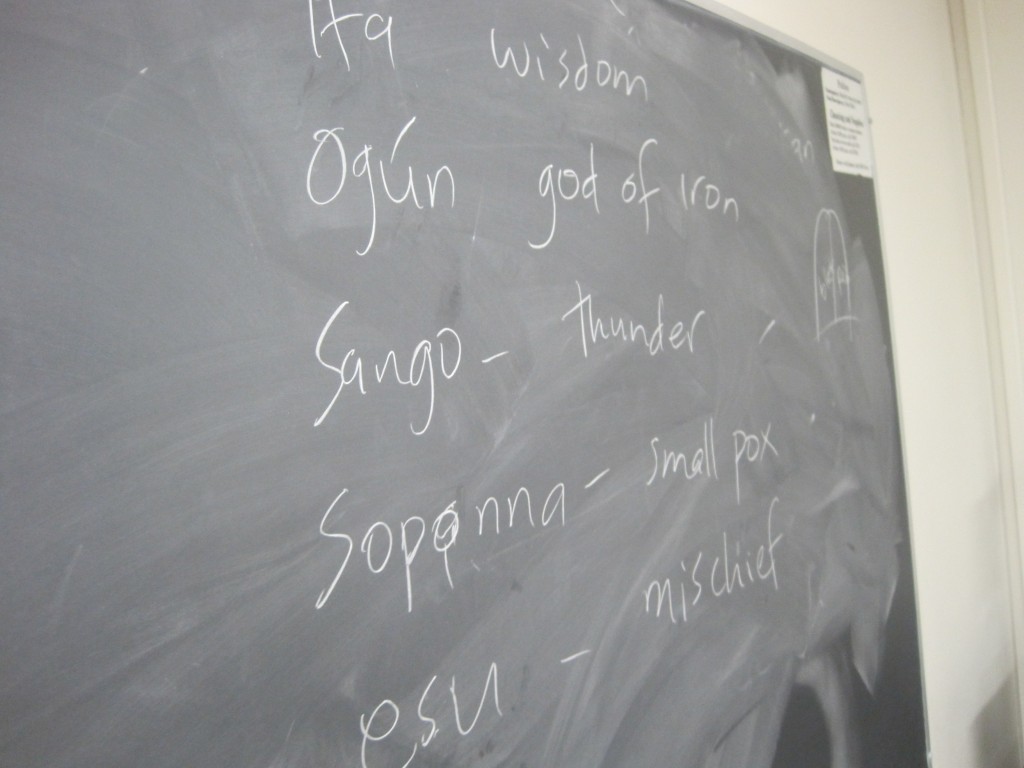 Ifa wisdom
Ogún god of iron
Sango - thunder -
Soponna - small pox
esu - mischief